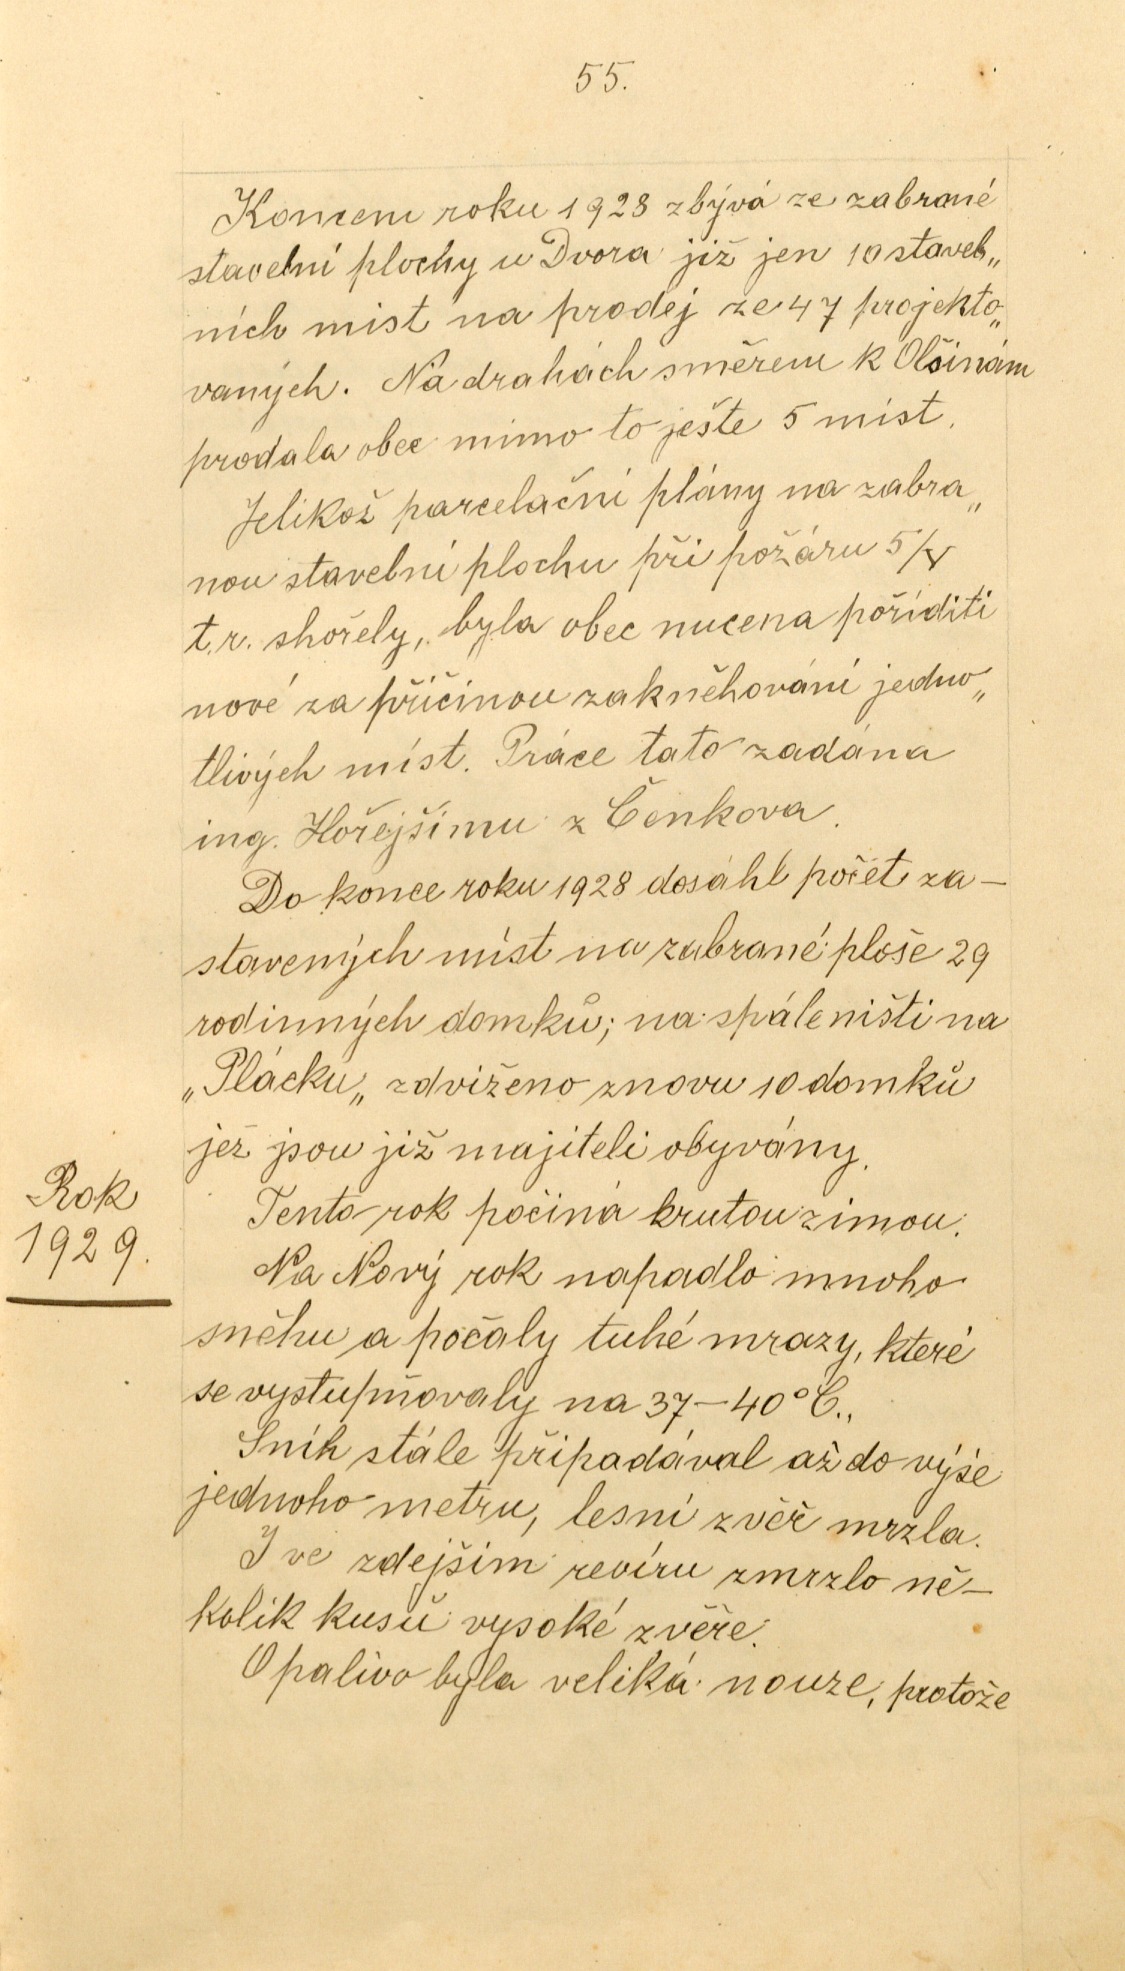 55.
Koncem roku 1928 zbývá ze zabrané
stavební plochy u Dvora již jen 10 staveb„
ních míst na prodej ze 47 projekto„
vaných. Na drahách směrem k Olšinám
prodala obec mimo to ješte 5 míst.
Jelikož parcelační plány na zabra„
nou stavební plochu při požáru 5/V
t.r. shořely, byla obec nucena poříditi
nové za příčinou zakněhování jedno„
tlivých míst. Práce tato zadána
ing. Hořejšímu z Čenkova.
Do konce roku 1928 dosáhl počet za-
stavených míst na zabrané ploše 29
rodinných domků; na spáleništi na
„Plácku„ zdviženo znovu 10 domků
jež jsou již majiteli obývány.
Rok
1929.
Tento rok počíná krutou zimou.
Na Nový rok napadlo mnoho
sněhu a počaly tuhé mrazy, které
se vystupňovaly na 37-40°C.,
Sníh stále připadával až do výše
jednoho metru, lesní zvěř mrzla.
I ve zdejším revíru zmrzlo ně-
kolik kusů vysoké zvěře.
O palivo byla veliká nouze, protože